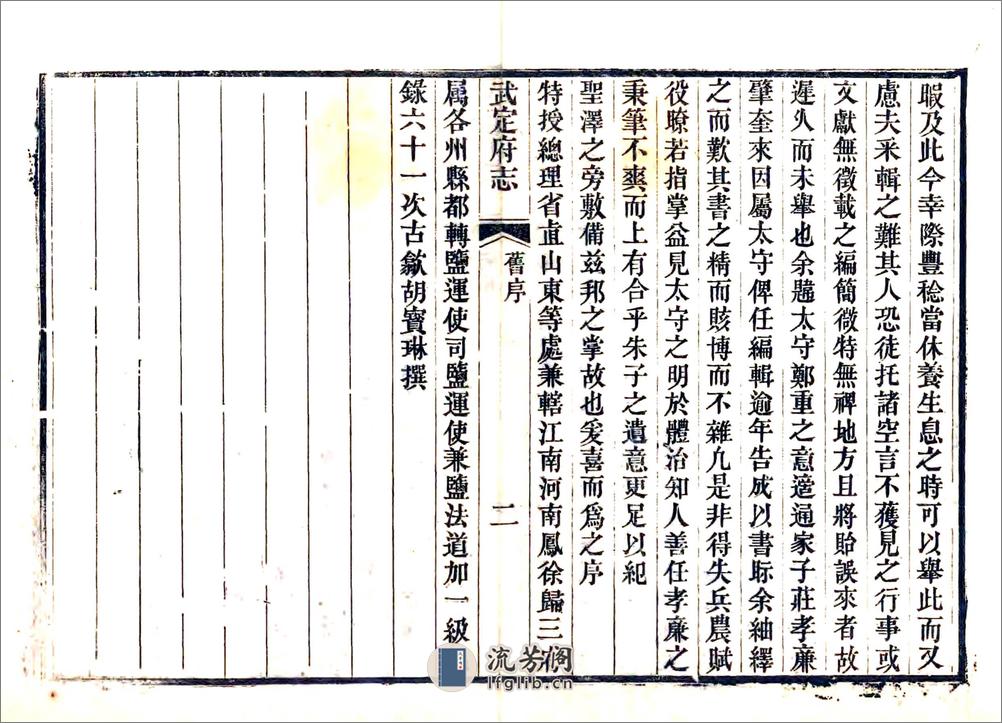 暇及此今幸際豐稔當休養生息之時可以舉此而又
慮夫采輯之難其人恐徒托諸空言不獲見之行事或
文獻無徵載之編簡徵特無裨地方且將貽誤來者故
遲久而未舉也余韙太守鄭重之意適通家子莊孝廉
肇奎來因屬太守俾任編輯逾年告成以書眎余紬繹
之而歎其書之精而賅博而不雜凡是非得失兵農賦
役瞭若指掌益見太守之明於體治知人善任孝廉之
秉筆不爽而上有合乎朱子之遺意更足以紀
聖澤之旁敷備兹邦之掌故也爰喜而爲之序
特授總理省直山東等處兼轄江南河南鳳徐歸三
武定府志
舊序
二
属各州縣都轉鹽運使司鹽運使兼鹽法道加一級
錄六十一次古歙胡寶琳撰
流芳阁
lfglib.cn